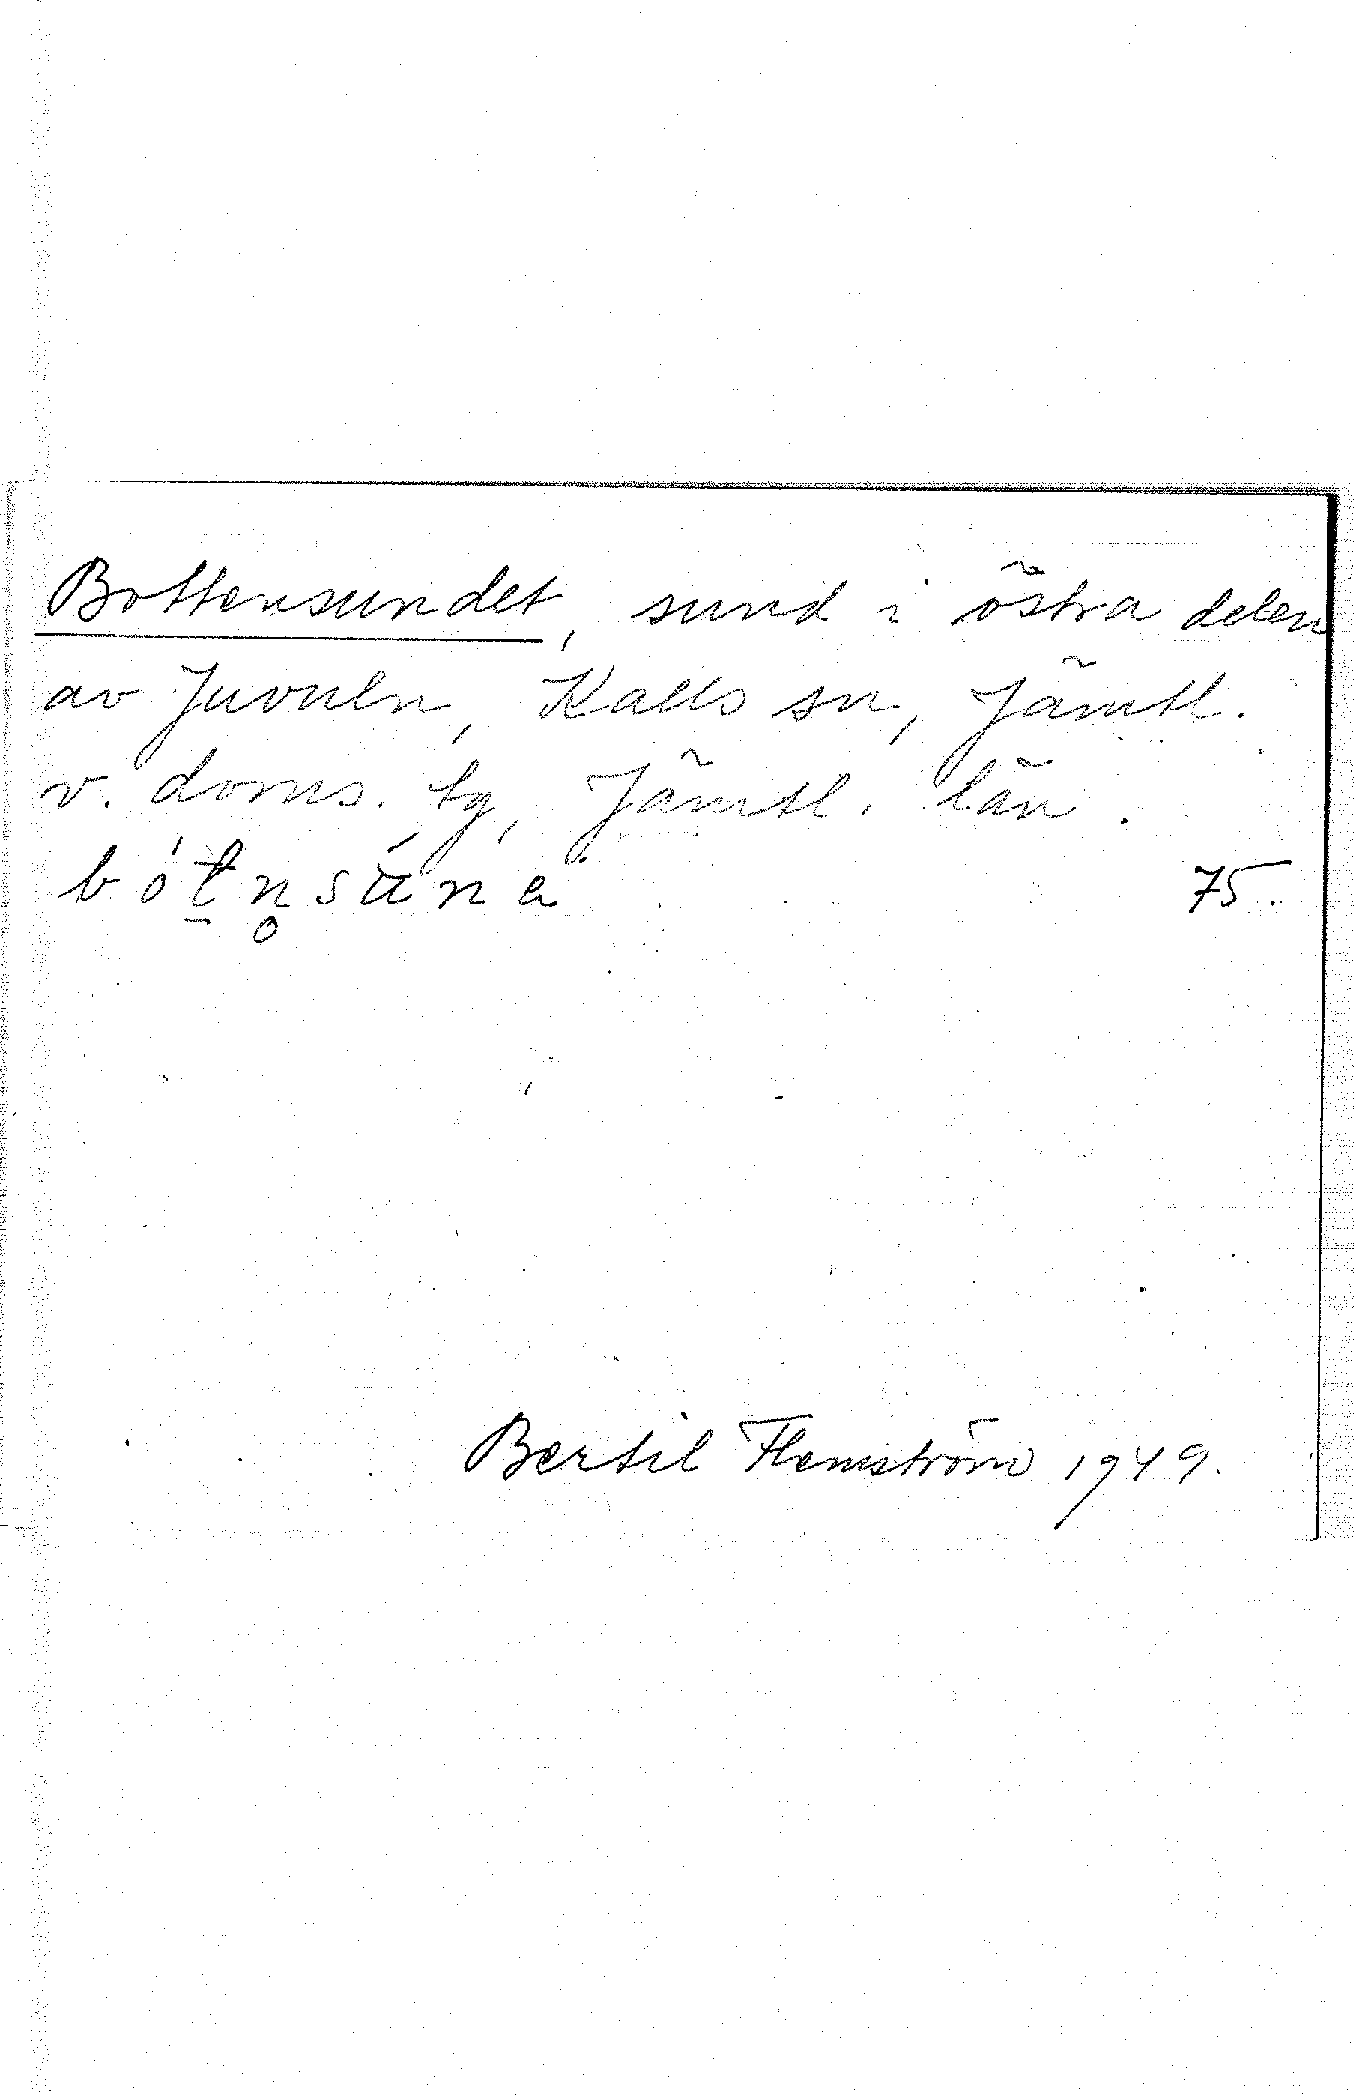 Bottensundet, sund i östra delen
av Juvuln, Kalls sn, Jämtl.
v. doms. tg, Jämtl. län.
bót̲n̥súna 75.
Bertil Flemström 1949.